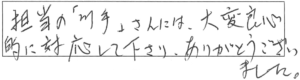 担当の「川手」さんには、大変良心
的に対応して下さり、ありがとうござい
ました。